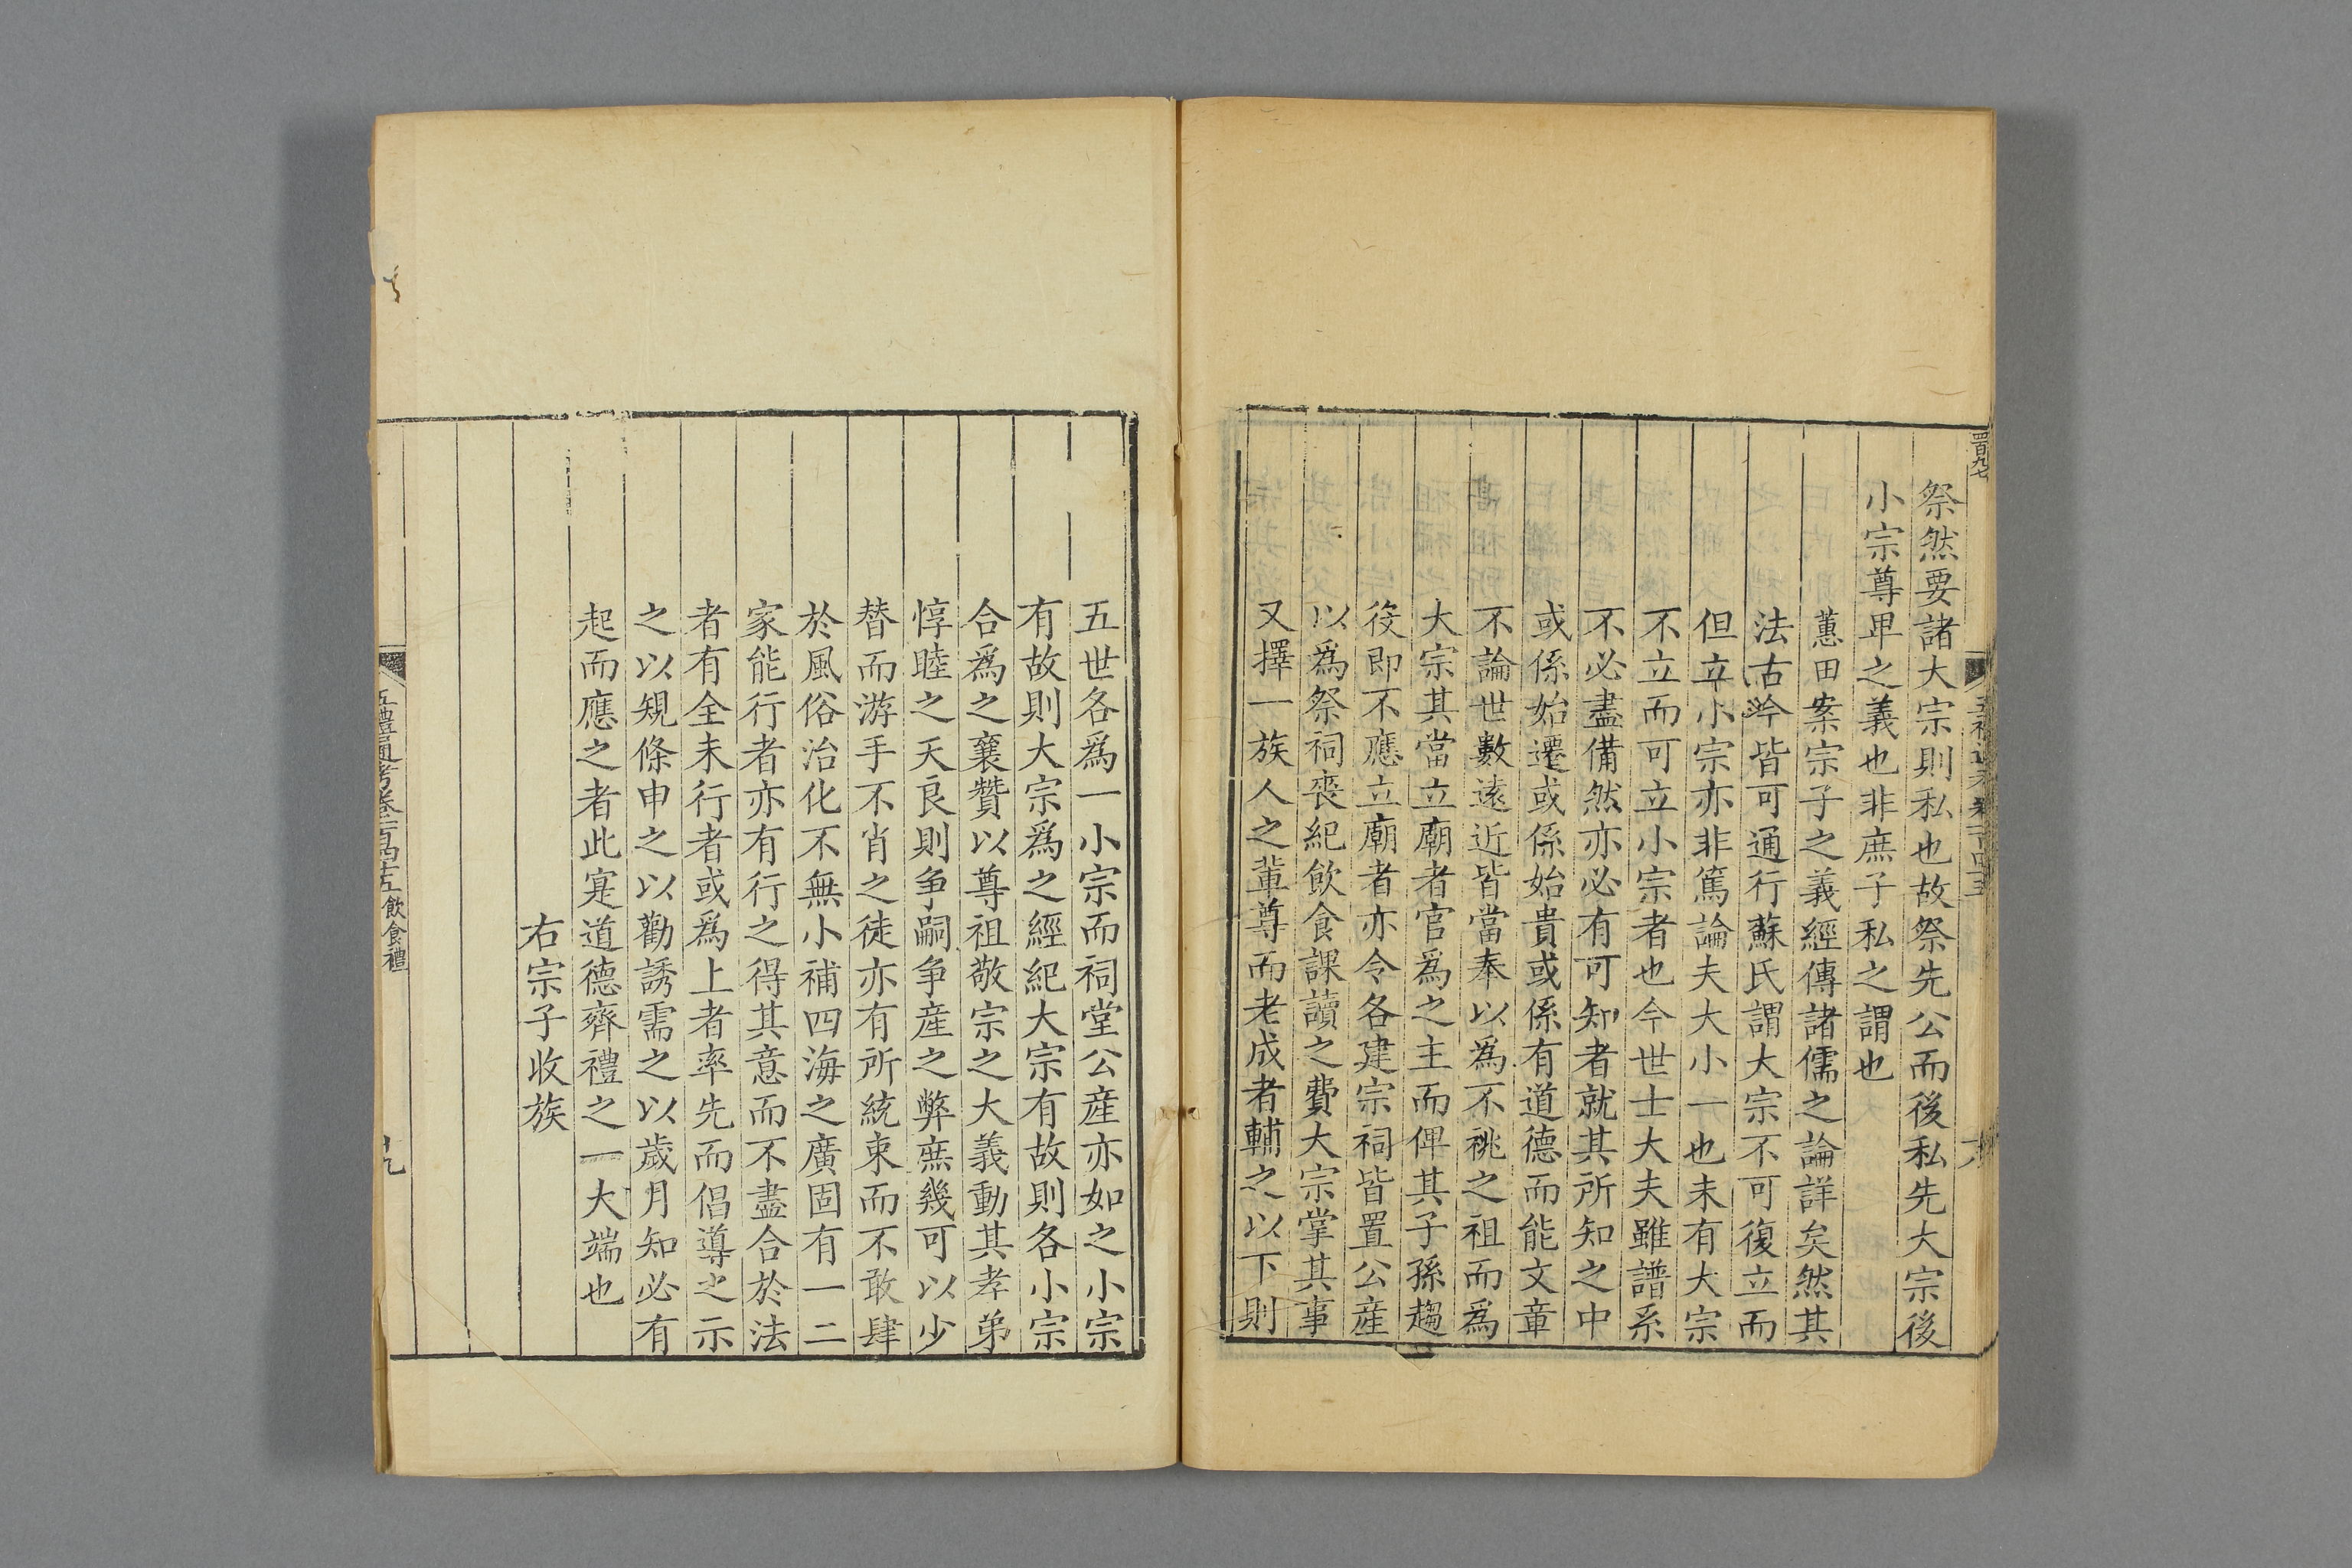 四百九七
祭然要諸大宗則私也故祭先公而後私先大宗後
小宗尊卑之義也非庶子私之謂也
蕙田案宗子之義經傳諸儒之論詳矣然其
法古吟皆可通行蘇氏謂大宗不可復立而
但立小宗亦非篤論夫大小一也未有大宗
不立而可立小宗者也今世士大夫雖譜系
不必盡備然亦必有可知者就其所知之中
或係始遷或係始貴或係有道德而能文章
不論世數遠近皆當奉以爲不祧之祖而爲
大宗其當立廟者官爲之主而俾其子孫趨
役即不應立廟者亦令各建宗祠皆置公産
以爲祭祠喪紀飲食課讀之費大宗掌其事
又擇一族人之軰尊而老成者輔之以下則
五世各爲一小宗而祠堂公産亦如之小宗
有故則大宗爲之經紀大宗有故則各小宗
合爲之襄贊以尊祖敬宗之大義動其孝弟
惇睦之天良則争嗣争産之弊庶幾可以少
替而游手不肖之徒亦有所統束而不敢肆
於風俗治化不無小補四海之廣固有一二
家能行者亦有行之得其意而不盡合於法
者有全未行者或爲上者率先而倡導之示
之以規條申之以勸誘需之以歲月知必有
起而應之者此寔道德齊禮之一大端也
右宗子收族
五禮通考卷一百四十五 飲食禮